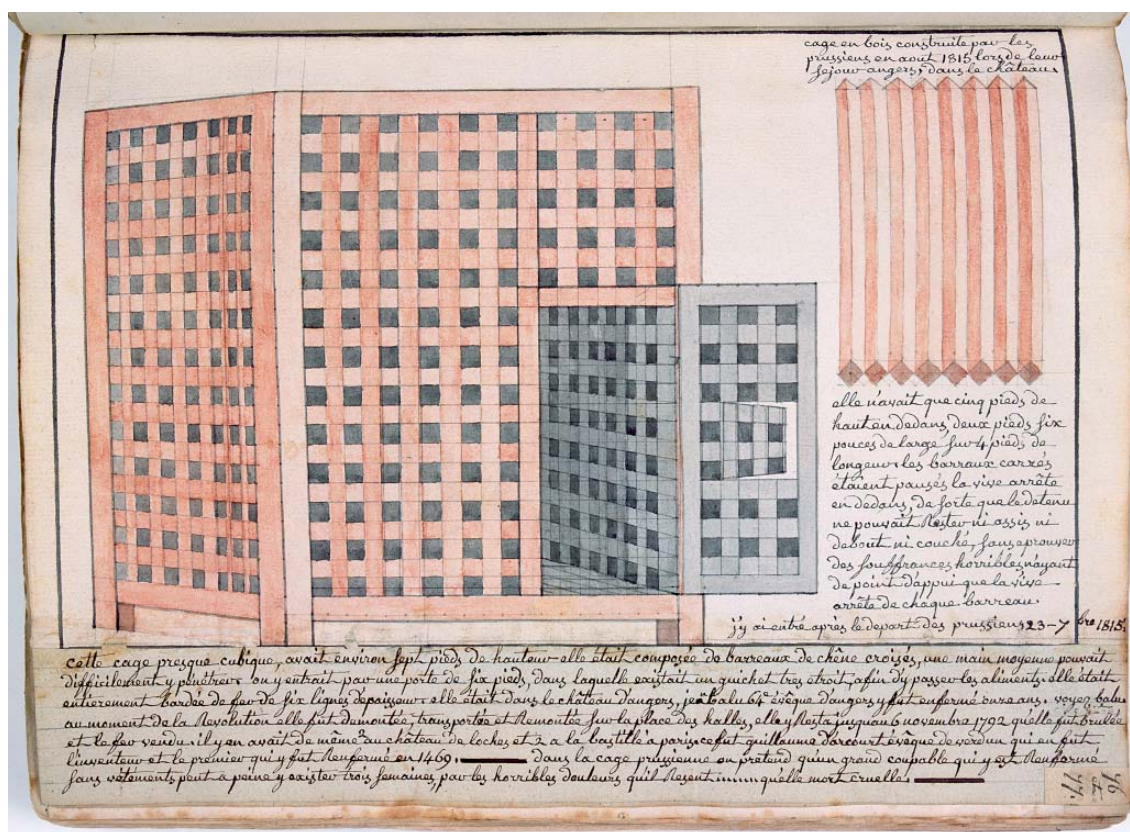 cage en bois construite par les
prussiens en aout 1815 lors de leur
sejour angers, dans le château.
elle n'avait que cinq pieds de
haut en dedans, deux pieds six
pouces de large sur 4 pieds de
longeur. les barraux carrés
étaient pausés la vive arrête
en dedans, de sorte que le detenu
ne pouvait Rester ni assis ni
debout ni couché, sans eprouver
des souffrances horribles n'ayant
de point d'appui que la vive
arrête de chaque barreau.
j'y ai entré après le depart des prussiens 23 - 7 bre 1815.
cette cage presque cubique, avait environ sept pieds de hauteur elle était composée de barreaux de chêne croisés, une main moyenne pouvait
difficilement y pénétrer. on y entrait par une porte de six pieds, dans laquelle existait un guichet très étroit, afin d'y passer les aliments. elle était
entierement bardée de fer de six lignes d'épaisseur. elle était dans le château d'angers, jean balu 64e évêque d'angers y fut enfermé onze ans. voyez balue
au moment de la Revolution elle fut demontée, transportée et Remontée sur la place des halles, elle y Resta jusqu'au 6 novembre 1792 qu'elle fut brulée
et le fer vendu. il y en avait de même au château de loches et 2 a la bastille a paris. ce fut guillaume d'arcourt évêque de verdun qui en fut
l'inventeur et le premier qui y fut Renfermé en 1469. dans la cage prussienne on prétend qu'un grand coupable qui y est Renfermé
sans vêtements peut a peine y exister trois semaines, par les horribles douleurs qu'il Resent ...... quelle mort cruelle.